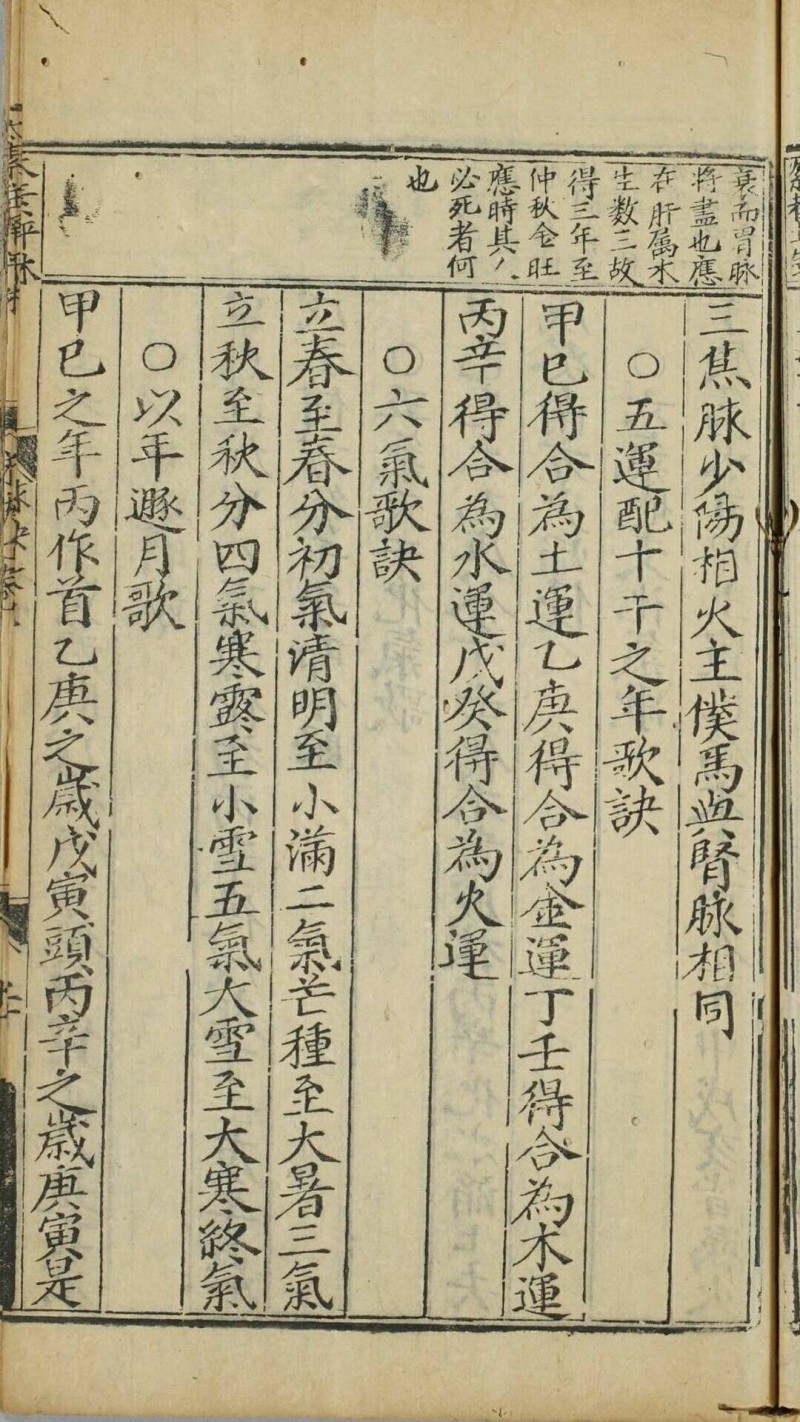 衰而胃脉
將盡也應
在肝属木
生数三故
得三年至
仲秋金旺
應時其人
必死者何
也
三焦脉少陽相火主僕馬與腎脉相同
○五運配十干之年歌訣
甲巳得合為土運乙庚得合為金運丁壬得合為木運
丙辛得合為水運戊癸得合為火運
○六氣歌訣
立春至春分初氣清明至小滿二氣芒種至大暑三氣
立秋至秋分四氣寒露至小雪五氣大雪至大寒終氣
○以年遯月歌
甲巳之年丙作首乙庚之歲戊寅頭丙辛之歲庚寅是